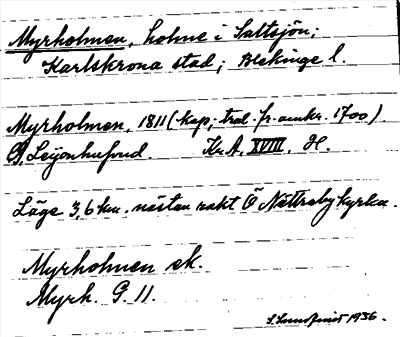 Myrholmen, holme i Saltsjön;
Karlskrona stad; Blekinge l.
Myrholmen, 1811 (kop; trol. fr. omkr. 1700).
G. Leijonhufvud. Kr. A, XVIII, H.
Läge 3,6 km. nästan rakt Ö Nättraby kyrka.
Myrholmen ek.
Myrh. G. 11.
S. Lundquist 1936.